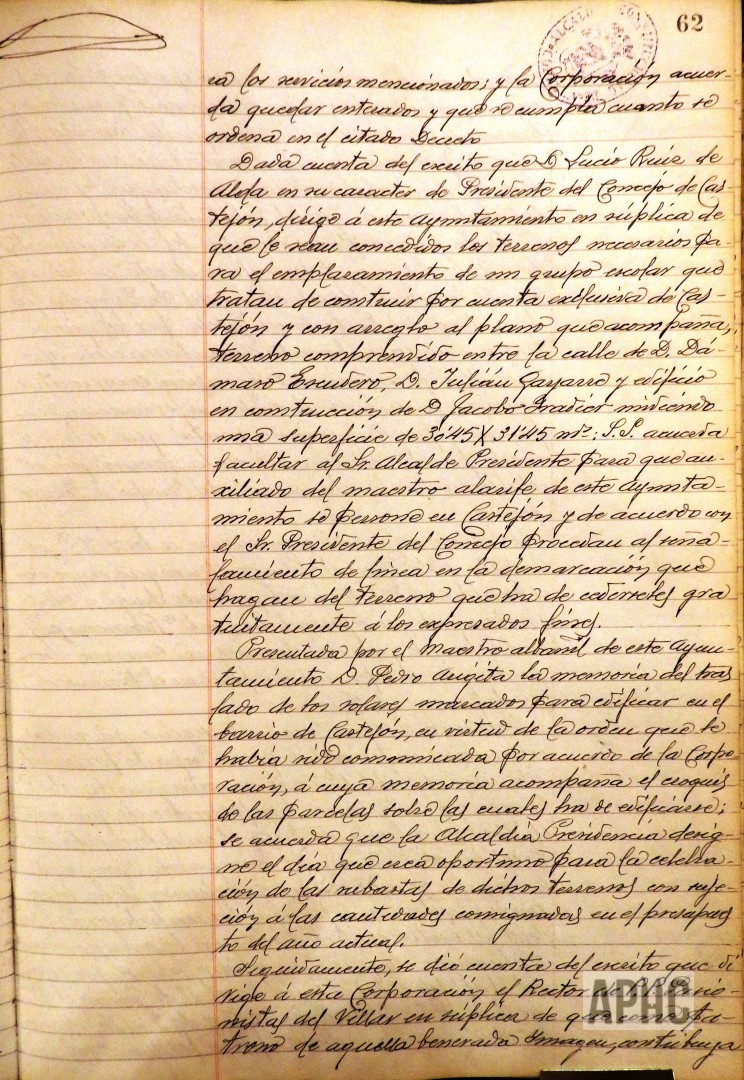 62
ra los servicios mencionados; y la Corporación acuer-
da quedar enterados y que se cumpla cuanto se
ordena en el citado Decreto
Dada cuenta del escrito que D. Lucio Ruiz de
Alda en su caracter de Presidente del Concejo de Cas-
tejón, dirige á este Ayuntamiento en súplica de
que le sean concedidos los terrenos necesarios pa-
ra el emplazamiento de un grupo escolar que
tratan de construir por cuenta exclusiva de Cas-
tejón y con arreglo al plano que acompaña,
terreno comprendido entre la calle de D. Dá-
maso Escudero, D. Julián Gayarre y edificio
en construcción de D. Jacobo Pradier midiendo
una superficie de 30'45 X 31'45 mts: S.S. acuerda
facultar al Sr. Alcalde Presidente para que au-
xiliado del maestro alarife de este Ayunta-
miento se persone en Castejón y de acuerdo con
el Sr. Presidente del Concejo procedan al seña-
lamiento de línea en la demarcación que
hagan del terreno que ha de cederseles gra
tuitamente á los expresados fines.
Presentada por el Maestro albañil de este Ayun-
tamiento D. Pedro Angita la memoria del tras
lado de los solares marcados para edificar en el
barrio de Castejón, en virtud de la orden que le
había sido comunicada por acuerdo de la Corpo-
ración, á cuya memoria acompaña el croquis
de las parcelas sobre las cuales ha de edificarse;
se acuerda que la Alcaldía Presidencia desig-
ne el día que crea oportuno para la celebra-
ción de las subastas de dichos terrenos con suje-
ción á las cantidades consignadas en el presupues
to del año actual.
Seguidamente, se dió cuenta del escrito que di
rige á esta Corporación el Rector de
nistas del Villar en súplica de que como Pa-
trono de aquella benerada Imagen, contribuya
APHC